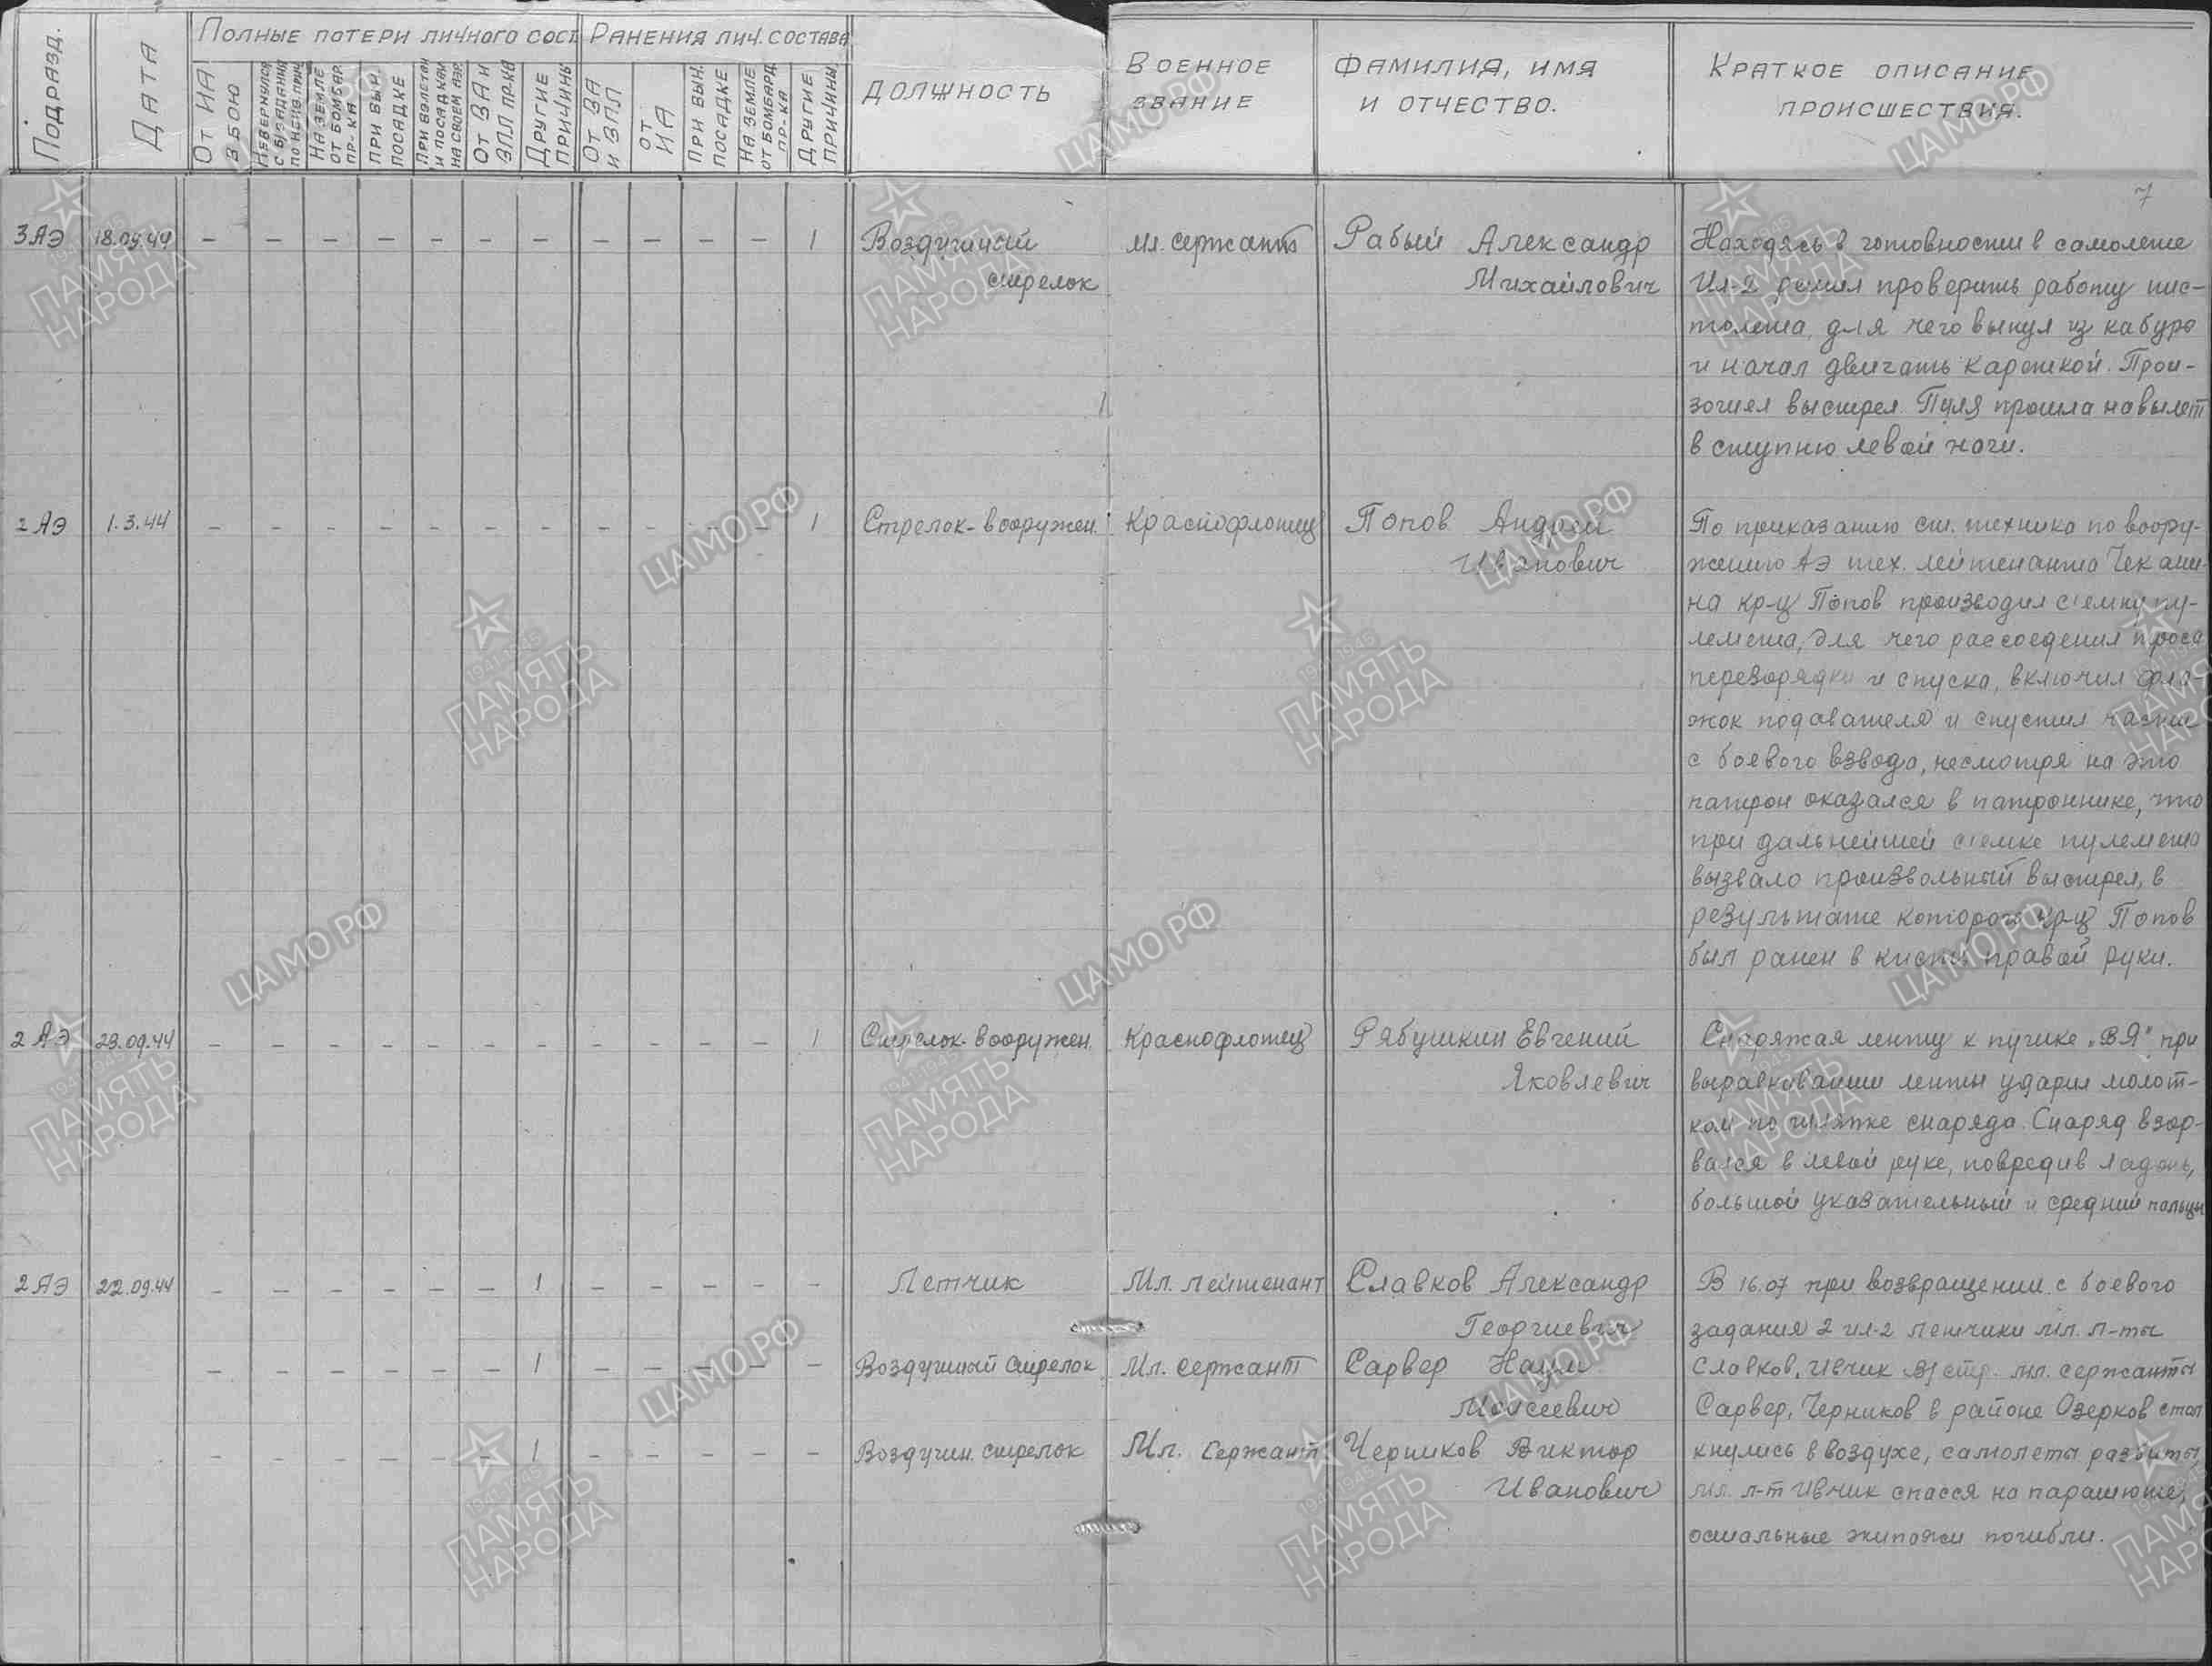 Полные потери личного сост.
Ранения лич. состава
Подразд.
Дата
От ИА
в бою
Невернулся
с б/задания
На земле
от бомбар.
пр-ка
При вын.
посадке
При взлетах
и посадках
на своем аэр.
От ЗА и
ЗПЛ пр-ка
Другие
причины
От ЗА
и ЗПЛ
От
ИА
При вын.
посадке
На земле
от бомбард.
пр-ка
Другие
причины
Должность
Военное
звание
Фамилия, имя
и отчество.
Краткое описание
происшествия.
7
3 АЭ 18.09.44 – – – – – – – – – – – 1 Воздушный мл. сержант Рабый Александр Находясь в готовности в самолете
стрелок Михайлович Ил-2 решил проверить работу пис-
толета, для чего вынул из кабуро
и начал двигать кареткой. Прои-
зошел выстрел. Пуля прошла навылет
в ступню левой ноги.
2 АЭ 1.3.44 – – – – – – – – – – – 1 Стрелок-вооружен. Краснофлотец Попов Андрей По приказанию ст. техника по воору-
Иванович жению АЭ тех. лейтенанта Чекани-
на кр-ц Попов производил с'емку пу-
лемета, для чего рассоединил троса
перезарядки и спуска, включил фла-
жок подавателя и спустил части
с боевого взвода, несмотря на это
патрон оказался в патроннике, что
при дальнейшей с'емке пулемета
вызвало произвольный выстрел, в
результате которого кр-ц Попов
был ранен в кисть правой руки.
2 АЭ 23.09.44 – – – – – – – – – – – 1 Стрелок-вооружен. Краснофлотец Рябушкин Евгений Снаряжая ленту к пушке „ВЯ" при
Яковлевич выравнивании ленты ударил молот-
ком по шляпке снаряда. Снаряд взор-
вался в левой руке, повредив ладонь,
большой указательный и средний пальцы
2 АЭ 22.09.44 – – – – – – 1 – – – – – Летчик Мл. лейтенант Славков Александр В 16.07 при возвращении с боевого
Георгиевич задания 2 ил-2 летчики мл. л-ты
– – – – – – 1 – – – – – Воздушный стрелок Мл. сержант Сарвер Наум Славков, Ивчик в/стр. мл. сержанты
Моисеевич Сарвер, Черников в районе Озерков стол
– – – – – – 1 – – – – – Воздушн. стрелок Мл. Сержант Черников Виктор кнулись в воздухе, самолеты разбиты,
Иванович мл. л-т Ивчик спасся на парашюте,
остальные экипажи погибли.